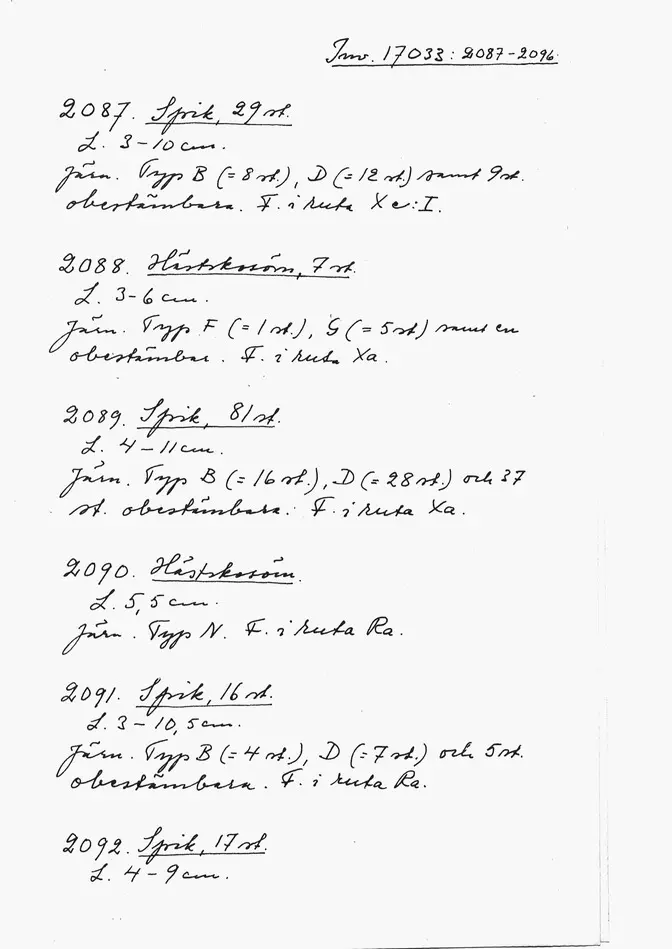 Inv. 17033: 2087-2096.
2087. Spik, 29 st.
L. 3-10 cm.
Järn. Typ B (= 8 st.), D (= 12 st.) samt 9 st.
obestämbara. F. i ruta Xc:I.
2088. Hästskosöm, 7 st.
L. 3-6 cm.
Järn. Typ F (= 1 st.), G (= 5 st) samt en
obestämbar. F. i ruta Xa.
2089. Spik, 81 st.
L. 4-11 cm.
Järn. Typ B (= 16 st.), D (= 28 st.) och 37
st. obestämbara. F. i ruta Xa.
2090. Hästskosöm.
L. 5,5 cm.
Järn. Typ N. F. i ruta Ra.
2091. Spik, 16 st.
L. 3-10,5 cm.
Järn. Typ B (= 4 st.), D (= 7 st.) och 5 st.
obestämbara. F. i ruta Ra.
2092. Spik, 17 st.
L. 4-9 cm.